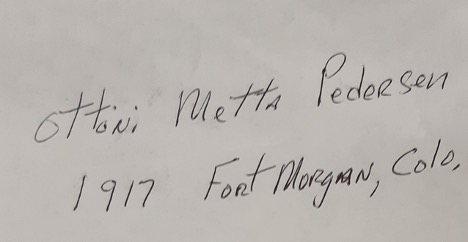 Ottoni Metta Pedersen
1917 Fort Morgan, Colo.